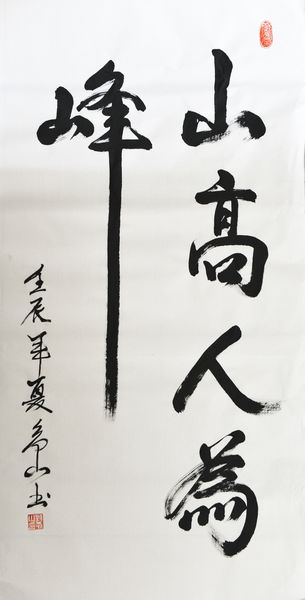 山高人為
峰
壬辰年夏山书